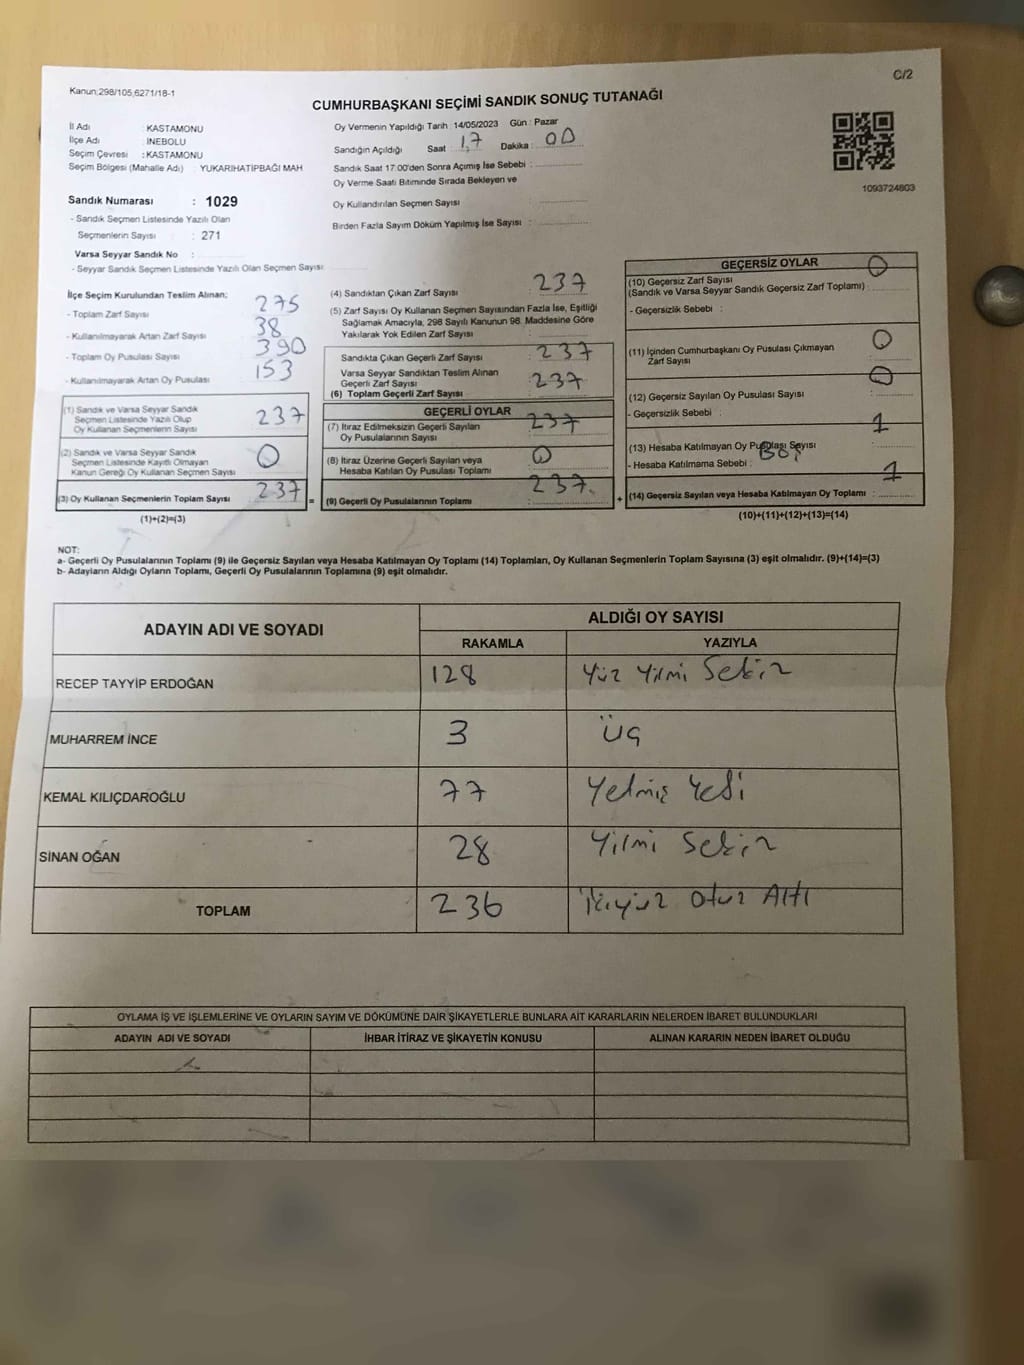 C/2
Kanun;298/105,6271/18-1
CUMHURBAŞKANI SEÇİMİ SANDIK SONUÇ TUTANAĞI
İl Adı : KASTAMONU
İlçe Adı : İNEBOLU
Seçim Çevresi : KASTAMONU
Seçim Bölgesi (Mahalle Adı) : YUKARIHATİPBAĞI MAH
Oy Vermenin Yapıldığı Tarih : 14/05/2023 Gün : Pazar
Sandığın Açıldığı Saat : 17 Dakika : 00
Sandık Saat 17:00'den Sonra Açımış İse Sebebi :
Oy Verme Saati Bitiminde Sırada Bekleyen ve
Oy Kullandırılan Seçmen Sayısı :
Birden Fazla Sayım Döküm Yapılmış İse Sayısı :
1093724803
Sandık Numarası : 1029
- Sandık Seçmen Listesinde Yazılı Olan
Seçmenlerin Sayısı : 271
Varsa Seyyar Sandık No :
- Seyyar Sandık Seçmen Listesinde Yazılı Olan Seçmen Sayısı:
İlçe Seçim Kurulundan Teslim Alınan;
- Toplam Zarf Sayısı : 275
- Kullanılmayarak Artan Zarf Sayısı : 38
- Toplam Oy Pusulası Sayısı : 390
- Kullanılmayarak Artan Oy Pusulası : 153
(1) Sandık ve Varsa Seyyar Sandık
Seçmen Listesinde Yazılı Olup
Oy Kullanan Seçmenlerin Sayısı : 237
(2) Sandık ve Varsa Seyyar Sandık
Seçmen Listesinde Kayıtlı Olmayan
Kanun Gereği Oy Kullanan Seçmen Sayısı : 0
(3) Oy Kullanan Seçmenlerin Toplam Sayısı : 237 =
(1)+(2)=(3)
(4) Sandıktan Çıkan Zarf Sayısı : 237
(5) Zarf Sayısı Oy Kullanan Seçmen Sayısından Fazla İse, Eşitliği
Sağlamak Amacıyla, 298 Sayılı Kanunun 98. Maddesine Göre
Yakılarak Yok Edilen Zarf Sayısı :
Sandıkta Çıkan Geçerli Zarf Sayısı : 237
Varsa Seyyar Sandıktan Teslim Alınan
Geçerli Zarf Sayısı : 237
(6) Toplam Geçerli Zarf Sayısı :
GEÇERLİ OYLAR
(7) İtiraz Edilmeksizin Geçerli Sayılan
Oy Pusulalarının Sayısı : 237
(8) İtiraz Üzerine Geçerli Sayılan veya
Hesaba Katılan Oy Pusulası Toplamı : 0
(9) Geçerli Oy Pusulalarının Toplamı : 237 +
GEÇERSİZ OYLAR
(10) Geçersiz Zarf Sayısı 0
(Sandık ve Varsa Seyyar Sandık Geçersiz Zarf Toplamı) :
- Geçersizlik Sebebi :
(11) İçinden Cumhurbaşkanı Oy Pusulası Çıkmayan
Zarf Sayısı : 0
(12) Geçersiz Sayılan Oy Pusulası Sayısı : 0
- Geçersizlik Sebebi :
(13) Hesaba Katılmayan Oy Pusulası Sayısı : 1
- Hesaba Katılmama Sebebi : Boş
(14) Geçersiz Sayılan veya Hesaba Katılmayan Oy Toplamı : 1
(10)+(11)+(12)+(13)=(14)
NOT:
a- Geçerli Oy Pusulalarının Toplamı (9) ile Geçersiz Sayılan veya Hesaba Katılmayan Oy Toplamı (14) Toplamları, Oy Kullanan Seçmenlerin Toplam Sayısına (3) eşit olmalıdır. (9)+(14)=(3)
b- Adayların Aldığı Oyların Toplamı, Geçerli Oy Pusulalarının Toplamına (9) eşit olmalıdır.
ADAYIN ADI VE SOYADI ALDIĞI OY SAYISI
RAKAMLA YAZIYLA
RECEP TAYYİP ERDOĞAN 128 Yüz Yilmi Sekiz
MUHARREM İNCE 3 Üç
KEMAL KILIÇDAROĞLU 77 Yetmiş Yedi
SİNAN OĞAN 28 Yilmi Sekiz
TOPLAM 236 İkiyüz Otuz Altı
OYLAMA İŞ VE İŞLEMLERİNE VE OYLARIN SAYIM VE DÖKÜMÜNE DAİR ŞİKAYETLERLE BUNLARA AİT KARARLARIN NELERDEN İBARET BULUNDUKLARI
ADAYIN ADI VE SOYADI İHBAR İTİRAZ VE ŞİKAYETİN KONUSU ALINAN KARARIN NEDEN İBARET OLDUĞU